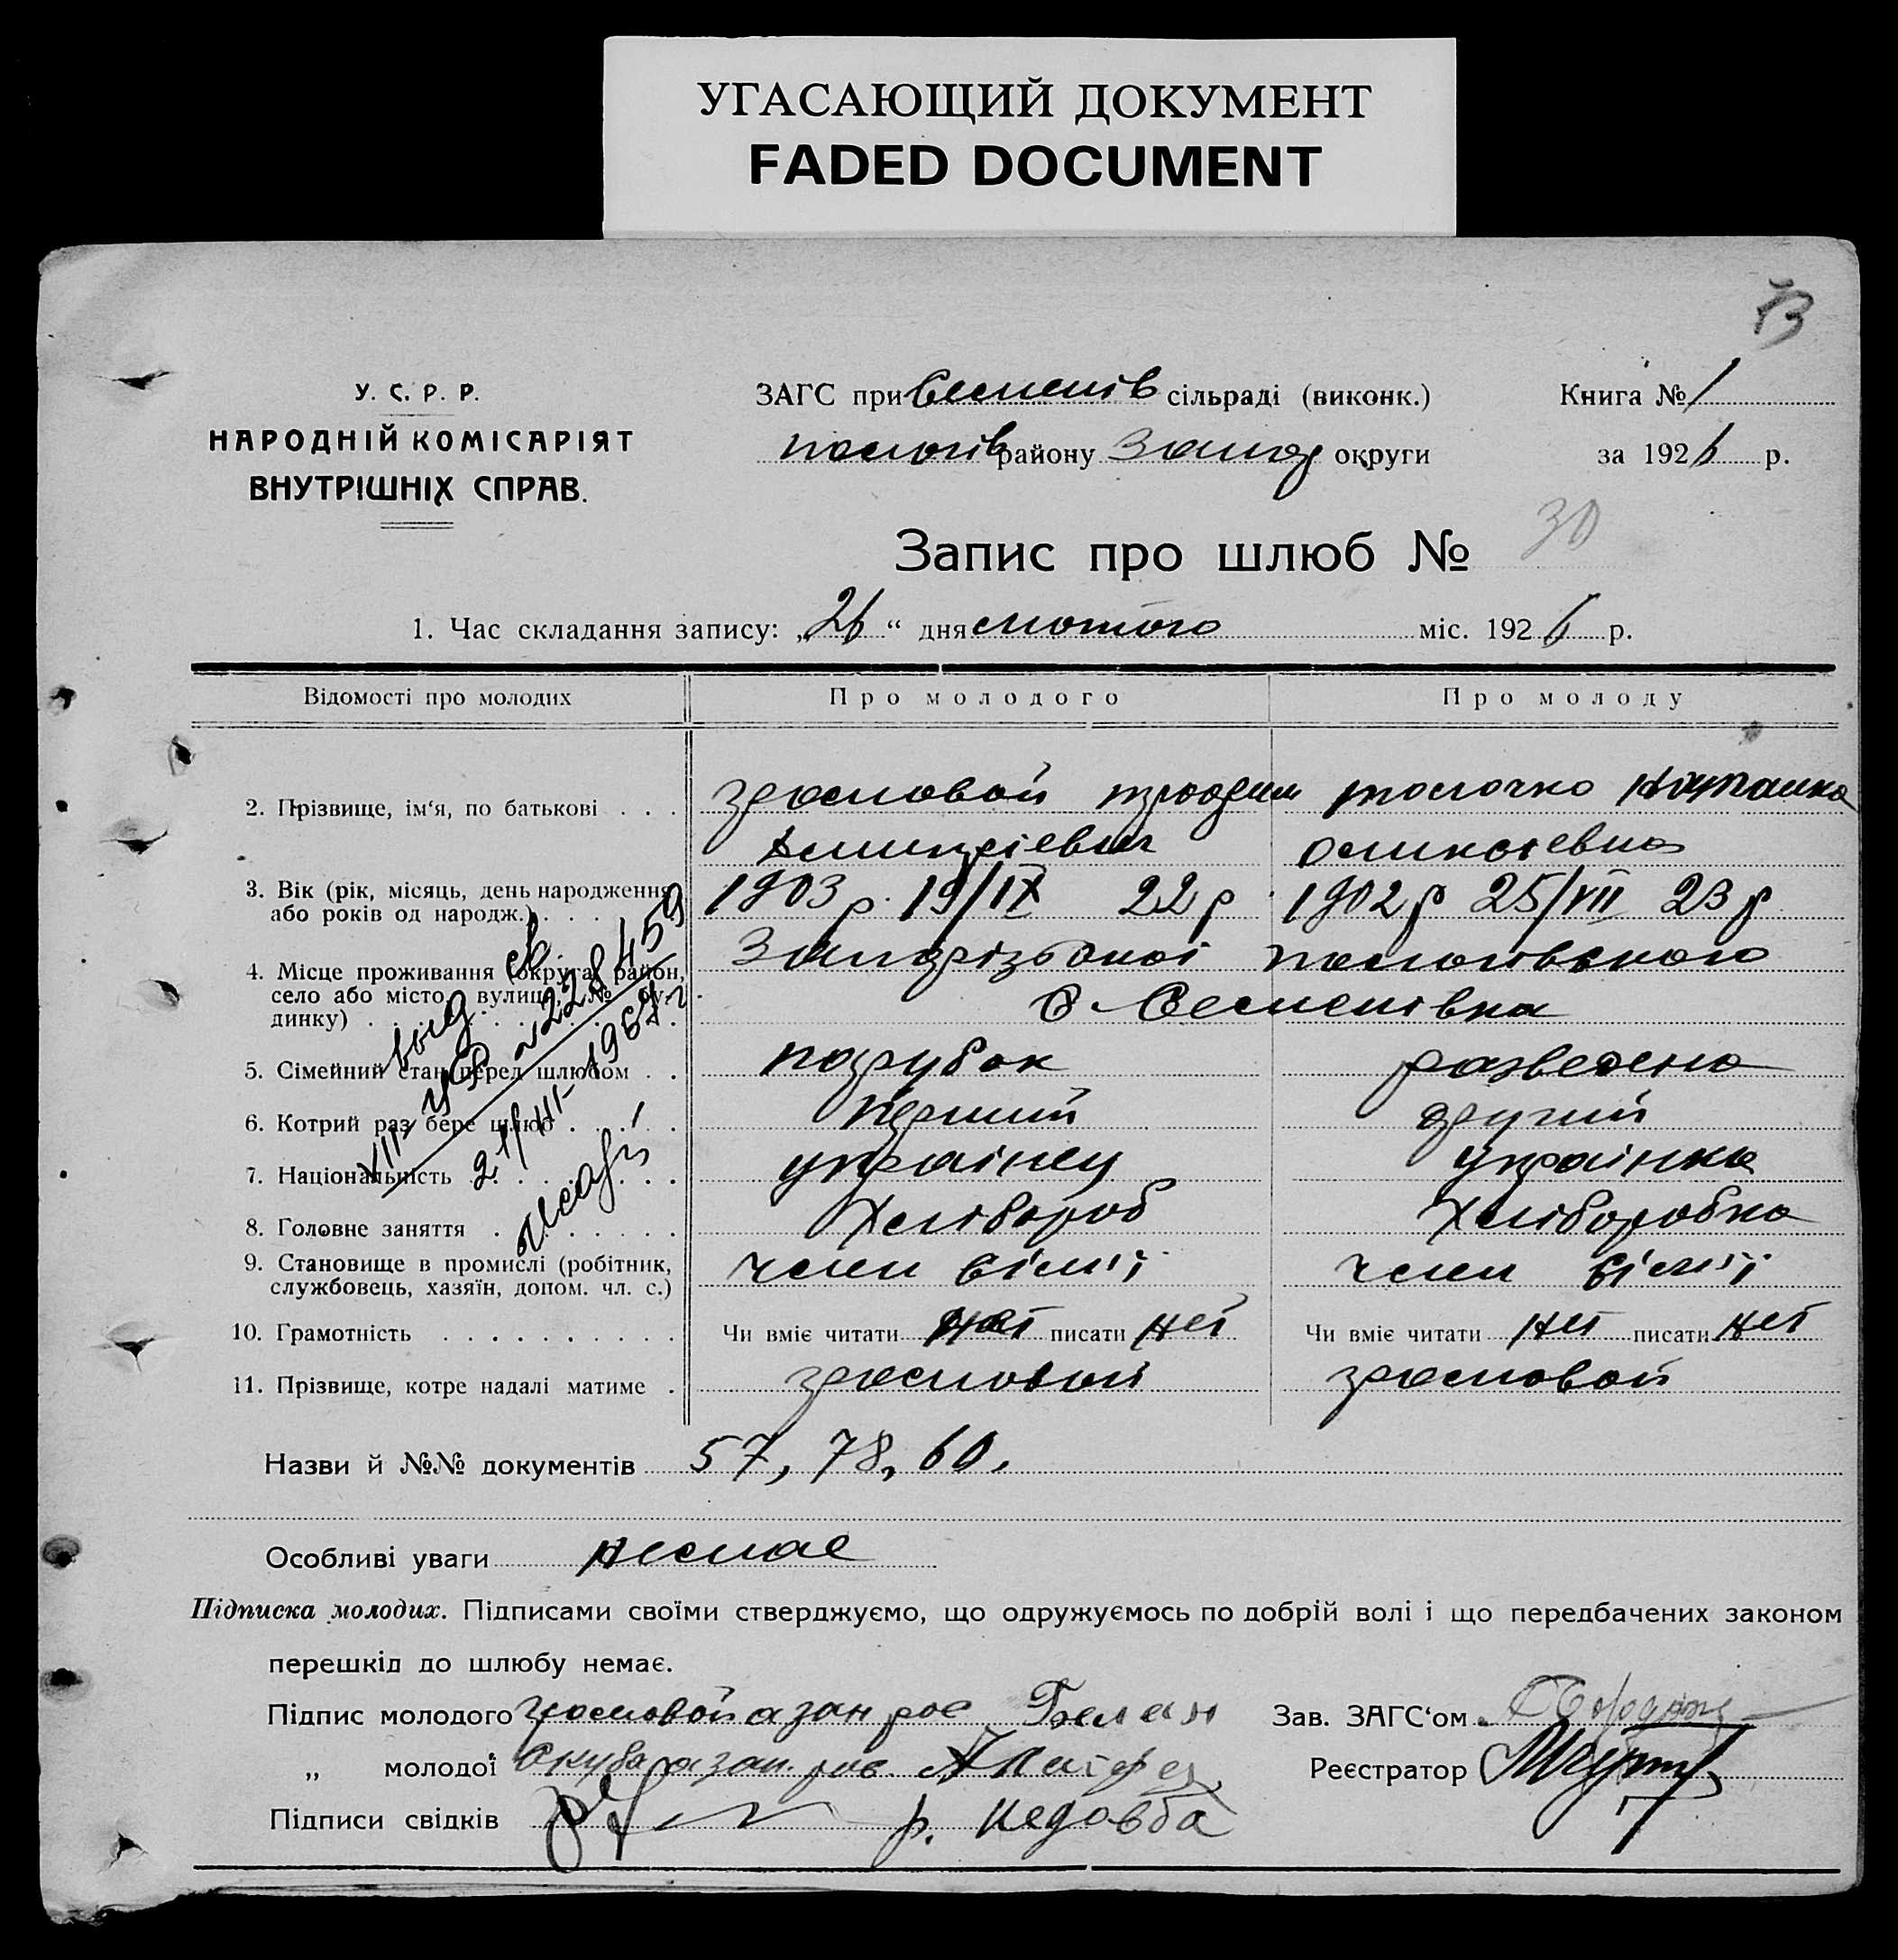 УГАСАЮЩИЙ ДОКУМЕНТ
FADED DOCUMENT
У. С. Р. Р.
НАРОДНІЙ КОМІСАРІЯТ
ВНУТРІШНІХ СПРАВ.
ЗАГС при Семенів сільраді (виконк.)
Пологів району Запор округи
Книга № 1
за 1926 р.
Запис про шлюб № 30
1. Час складання запису: „26“ дня лютого міс. 1926 р.
Відомості про молодих Про молодого Про молоду
2. Прізвище, ім‘я, по батькові . . .
3. Вік (рік, місяць, день народження або років од народж.) . . . 1903 р. 19/IX 22 р 1902 р 25/VII 23 р
4. Місце проживання (округа, район, село або місто, вулиця, № будинку) . . . Запорізької Пологівського
с. Семенівка
5. Сімейний стан перед шлюбом . . парубок разведена
6. Котрий раз бере шлюб . . . перший другий
7. Національність . . . українец українка
8. Головне заняття . . . Хлібороб Хліборобка
9. Становище в промислі (робітник, службовець, хазяїн, допом. чл. с.) член сімії член сімії
10. Грамотність . . . . . . . . . . Чи вміє читати нет писати нет Чи вміє читати нет писати нет
11. Прізвище, котре надалі матиме .
VІІ-ЖР № 228459
21/III-1967 г
Назви й №№ документів 57, 78, 60.
Особливі уваги немае
Підписка молодих. Підписами своїми стверджуємо, що одружуємось по добрій волі і що передбачених законом
перешкід до шлюбу немає.
Підпис молодого а за н рос Белан
„ молодої а за н. рос.
Підписи свідків р. Недовба
Зав. ЗАГС‘ом
Реєстратор